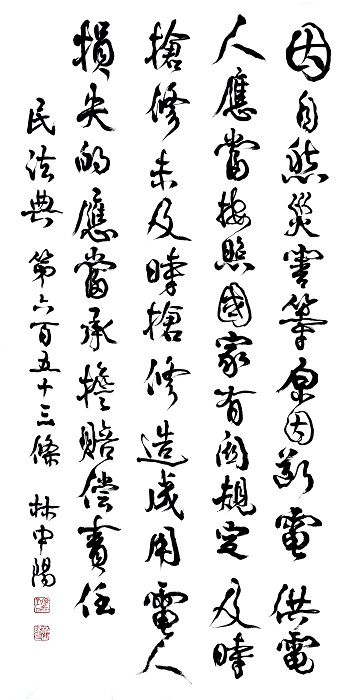 因自然災害等原因斷電供電
人應當按照國家有關規定及時
搶修未及時搶修造成用電人
損失的應當承擔賠偿責任
民法典第六百五十三條 林中陽